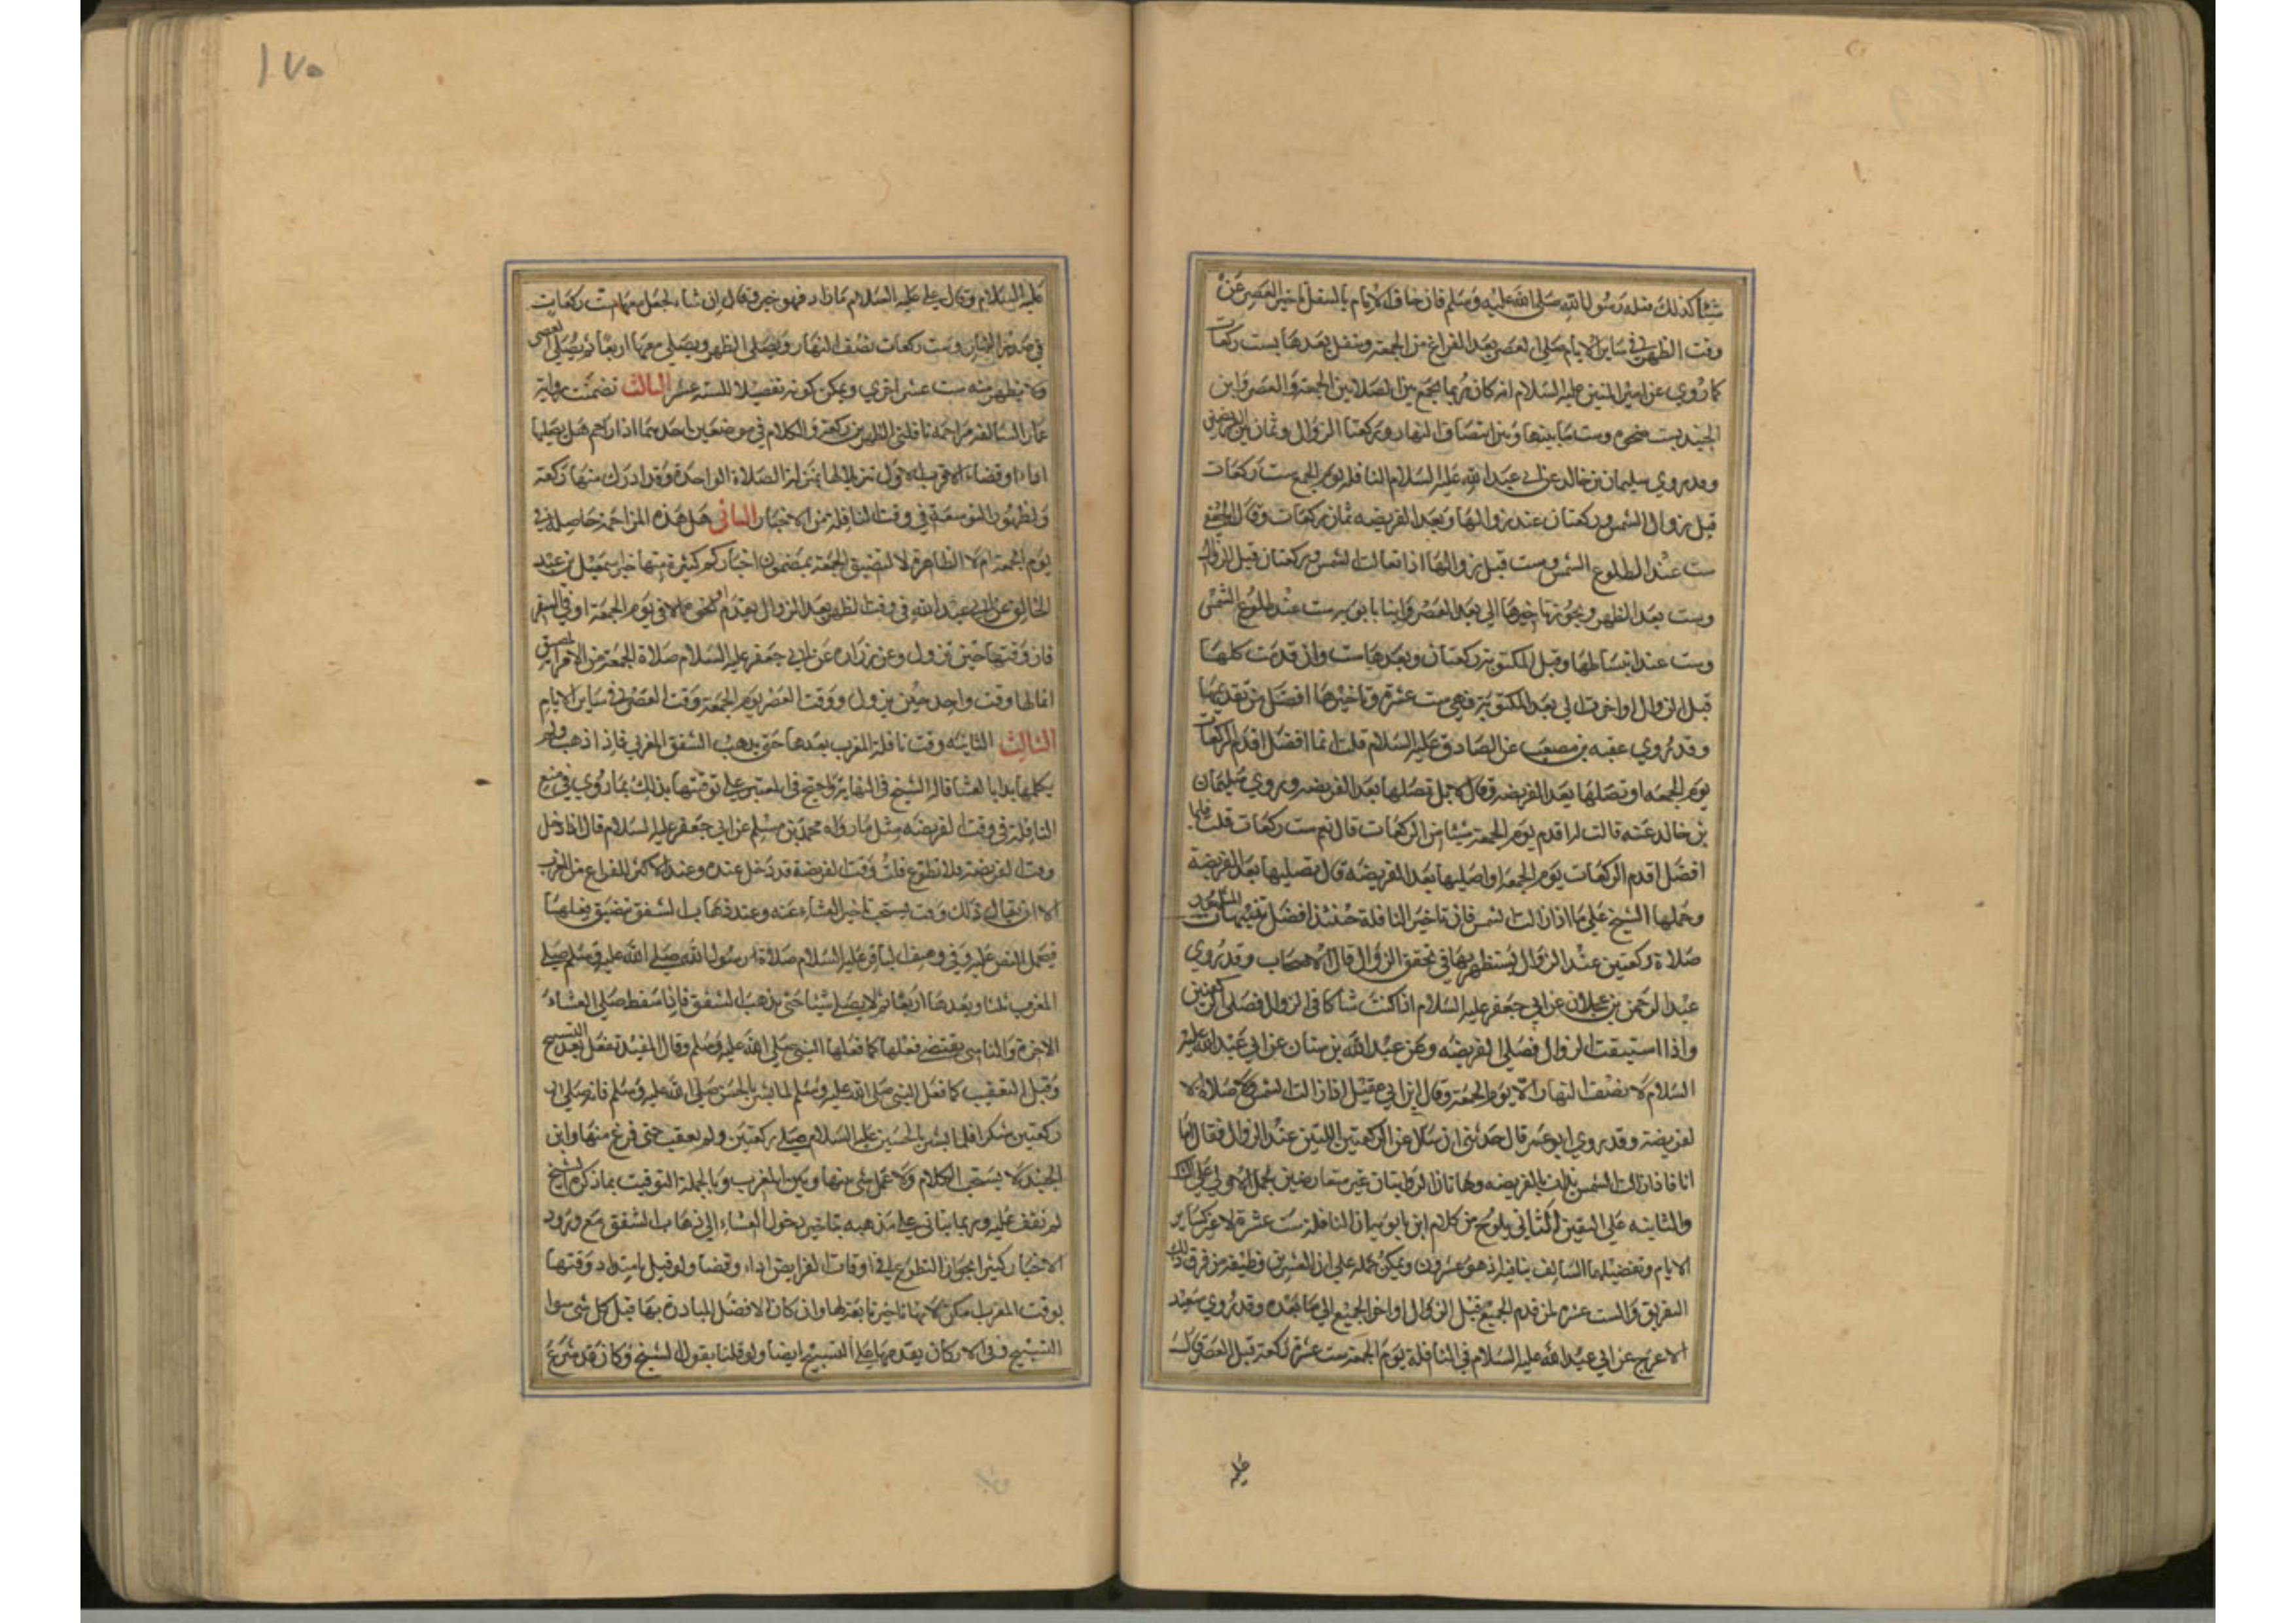 شيئا كذلك فعله رسول الله صلى الله عليه وسلم فان خاف الامام بالتنفل تاخير العصر عن
وقت الظهر في ساير الايام صلى العصر بعد الفراغ من الجمعة وتنفل بعدها بست ركعات
كما روي عن امير المومنين عليه السلام انه كان ربما يجمع بين الصلاتين الجمعة والعصر وابن
الجنيد ست ضحوة وست ما بينها وبين انتصاف النهار وركعتا الزوال وثمان بين الفرضين
وقد روي سليمان بن خالد عن ابي عبد الله عليه السلام النافلة يوم الجمعة ست ركعات
قبل زوال الشمس وركعتان عند زوالها وبعد الفريضه ثمان ركعات وقال الجعفي
ست عند طلوع الشمس وست قبل زوالها اذا تعالت الشمس وركعتان قبل الزوال
وست بعد الظهر ويجوز تاخيرها الى بعد العصر وابنا بابويه ست عند طلوع الشمس
وست عند انبساطها وقبل المكتوبة ركعتان وبعدها ست وان قدمت كلها
قبل الزوال او اخرت الى بعد المكتوبة فهي ست عشرة وتاخيرها افضل من تقديمها
وقد روي عقبه بن مصعب عن الصادق عليه السلام قلت ايما افضل اقدم الركعات
يوم الجمعه او تصلها بعد الفريضه قال لا بل تصلها بعد الفريضه وروي سليمان
بن خالد عنه قالت له اقدم يوم الجمعة شيئا من الركعات قال نعم ست ركعات قلت فايما
افضل اقدم الركعات يوم الجمعة او اصليها بعد الفريضه قال تصليها بعد الفريضة
وحملها الشيخ على ما اذا زالت الشمس فان تاخير النافلة حينئذ افضل
صلاة ركعتين عند الزوال يستظهر بهما في تحقق الزوال قال الاصحاب وقد روي
عبد الرحمن بن عجلان عن ابي جعفر عليه السلام اذا كنت شاكا في الزوال فصلى الركعتين
واذا استيقنت الزوال فصلى الفريضه وعن عبد الله بن سنان عن ابي عبد الله عليه
السلام لا نصف النهار الا يوم الجمعة وقال ابن ابي عقيل اذا زالت الشمس فلا صلاة الا
لفريضة وقد روي ابو عمر قال حدثني انه سئل عن الركعتين اللتين عند الزوال فقال اما
انا فاذا زالت الشمس بدات بالفريضه وهاتان الروايتان غير متعارضتين بحمل الاولى على الشك
والثانيه على اليقين الثاني يلوح من كلام ابن بابويه ان النافلة ست عشرة لا غير كساير
الايام وتفصيلها السالف ينافيه اذ هو عشرون ويمكن حمله على ان العشرين وظيفة من فرق ذلك
التفريق والست عشره لمن قدم الجميع قبل الزوال او اخر الجميع الى ما بعده وقد روي سعيد
الاعرج عن ابي عبد الله عليه السلام في النافلة يوم الجمعة ست عشرة ركعة قبل العصر قال
عليه
١٧٥
عليه السلام وقال علي عليه السلام ما زاد فهو خير وقال ان شاء يجعل منها ست ركعات
في صدر النهار وست ركعات نصف النهار ويصلى الظهر ويصلي معها اربعا ثم يصلي العصر
ست عشر اخرى ويمكن كونه تفصيلا للسته عشر الثالث تضمنت رواية
عمار السالفة مزاحمة نافلتي الظهرين بركعة والكلام في موضعين احدهما اذا زاحم هل يصليها
اداء او قضاء الاقرب الاول تنزيلا لها منزلة الصلاة الواحدة وقد ادرك منها ركعة
ولظهور التوسعة في وقت النافلة من الاخبار الثاني هل هذه المزاحمة حاصله في
يوم الجمعة ام لا الظاهر لا لتضييق الجمعة بمضمون اخبار كثيرة منها خبر اسمعيل بن عبد
الخالق عن ابي عبد الله في وقت الظهر بعد الزوال بقدم او نحوه الا في يوم الجمعة او في السفر
فان وقتها حين تزول وعن زراره عن ابي جعفر عليه السلام صلاة الجمعة من الامر المضيق
انما لها وقت واحد حين تزول ووقت العصر يوم الجمعة وقت العصر في ساير الايام
الثالث الثانيه وقت نافلة المغرب بعدها حتى يذهب الشفق المغربي فاذا ذهب ولم
يكملها بدا بالعشا قاله الشيخ في النهاية واحتج في المعتبر على توقيتها بذلك بما روي في منع
النافلة في وقت الفريضه مثل ما رواه محمد بن مسلم عن ابي جعفر عليه السلام قال اذا دخل
وقت الفريضة فلا تطوع فان وقت الفريضة قد دخل عنده وعند الاكثر للفراغ من المغرب
الا ان يقال ذلك وقت يستحب تاخير العشاء عنه وعند ذهاب الشفق تضيق فعلها
فيحمل النص عليه وفي وصف الباقر عليه السلام صلاة رسول الله صلى الله عليه وسلم صلى
المغرب ثلثا وبعدها اربعا ثم لا يصلى شيئا حتى يذهب الشفق فاذا سقط صلى العشاء
الاخرة والتاسي يقتضى فعلها كما فعلها النبي صلى الله عليه وسلم وقال المفيد تفعل بعد التسبيح
وقبل التعقيب كما فعل النبي صلى الله عليه وسلم لما بشر بالحسن صلى الله عليه وسلم فانه صلى
ركعتين شكرا فلما بشر بالحسين عليه السلام صلى ركعتين ولم يعقب حتى فرغ منها وابن
الجنيد لا يستحب الكلام ولا عمل شى بينها وبين المغرب وبالجملة التوقيت بما ذكره الشيخ
لم نقف عليه وربما يتاتى على مذهبه تاخير دخول العشاء الى ذهاب الشفق مع ورود
الاخبار كثيرا بجواز التطوع في اوقات الفرايض اداء وقضا ولو قيل بامتداد وقتها
بوقت المغرب امكن لانها تابعة لها وان كان الافضل المبادرة بها قبل كل شى سوا
التسبيح وفي الاركان يقدمها على التسبيح ايضا ولو قلنا بقول الشيخ وكان قد شرع